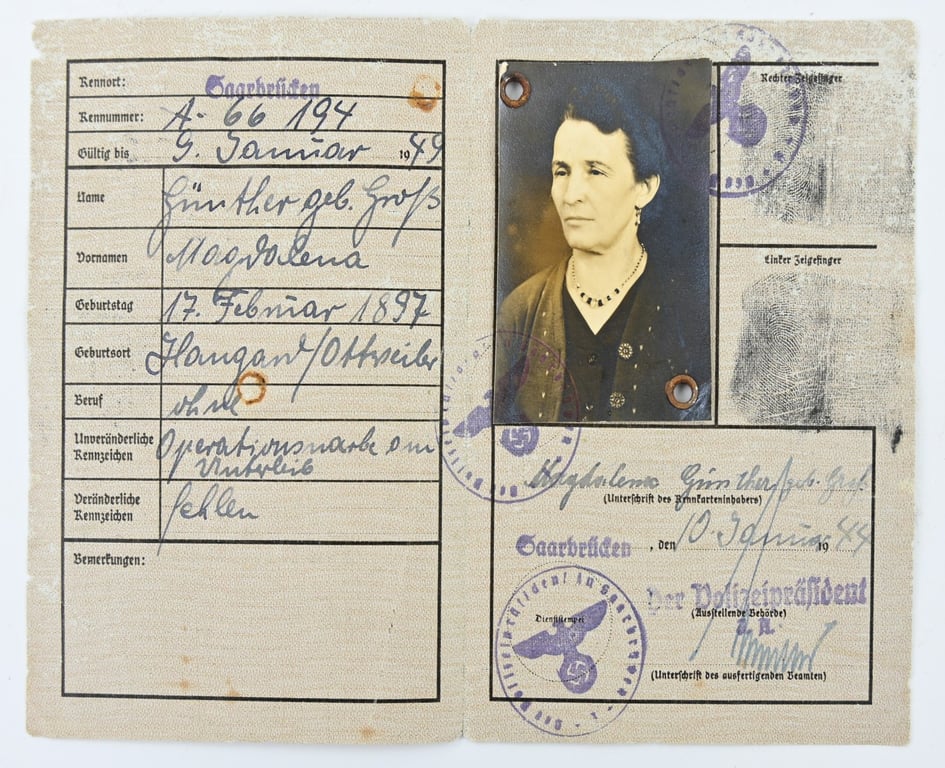 Kennort: Saarbrücken
Kennummer: A- 66 194
Gültig bis 9. Januar 1949
Name Günther geb. Groß
Vornamen Magdalena
Geburtstag 17. Februar 1897
Geburtsort Hangard/Ottweiler
Beruf ohne
Unveränderliche Kennzeichen Operationsnarbe am
Unterleib
Veränderliche Kennzeichen fehlen
Bemerkungen:
Rechter Zeigefinger
Linker Zeigefinger
Magdalena Günther geb. Groß
(Unterschrift des Kennkarteninhabers)
Saarbrücken, den 10. Januar 1944
Der Polizeipräsident
(Ausstellende Behörde)
Dienststempel
Der Polizeipräsident in Saarbrücken
(Unterschrift des ausfertigenden Beamten)